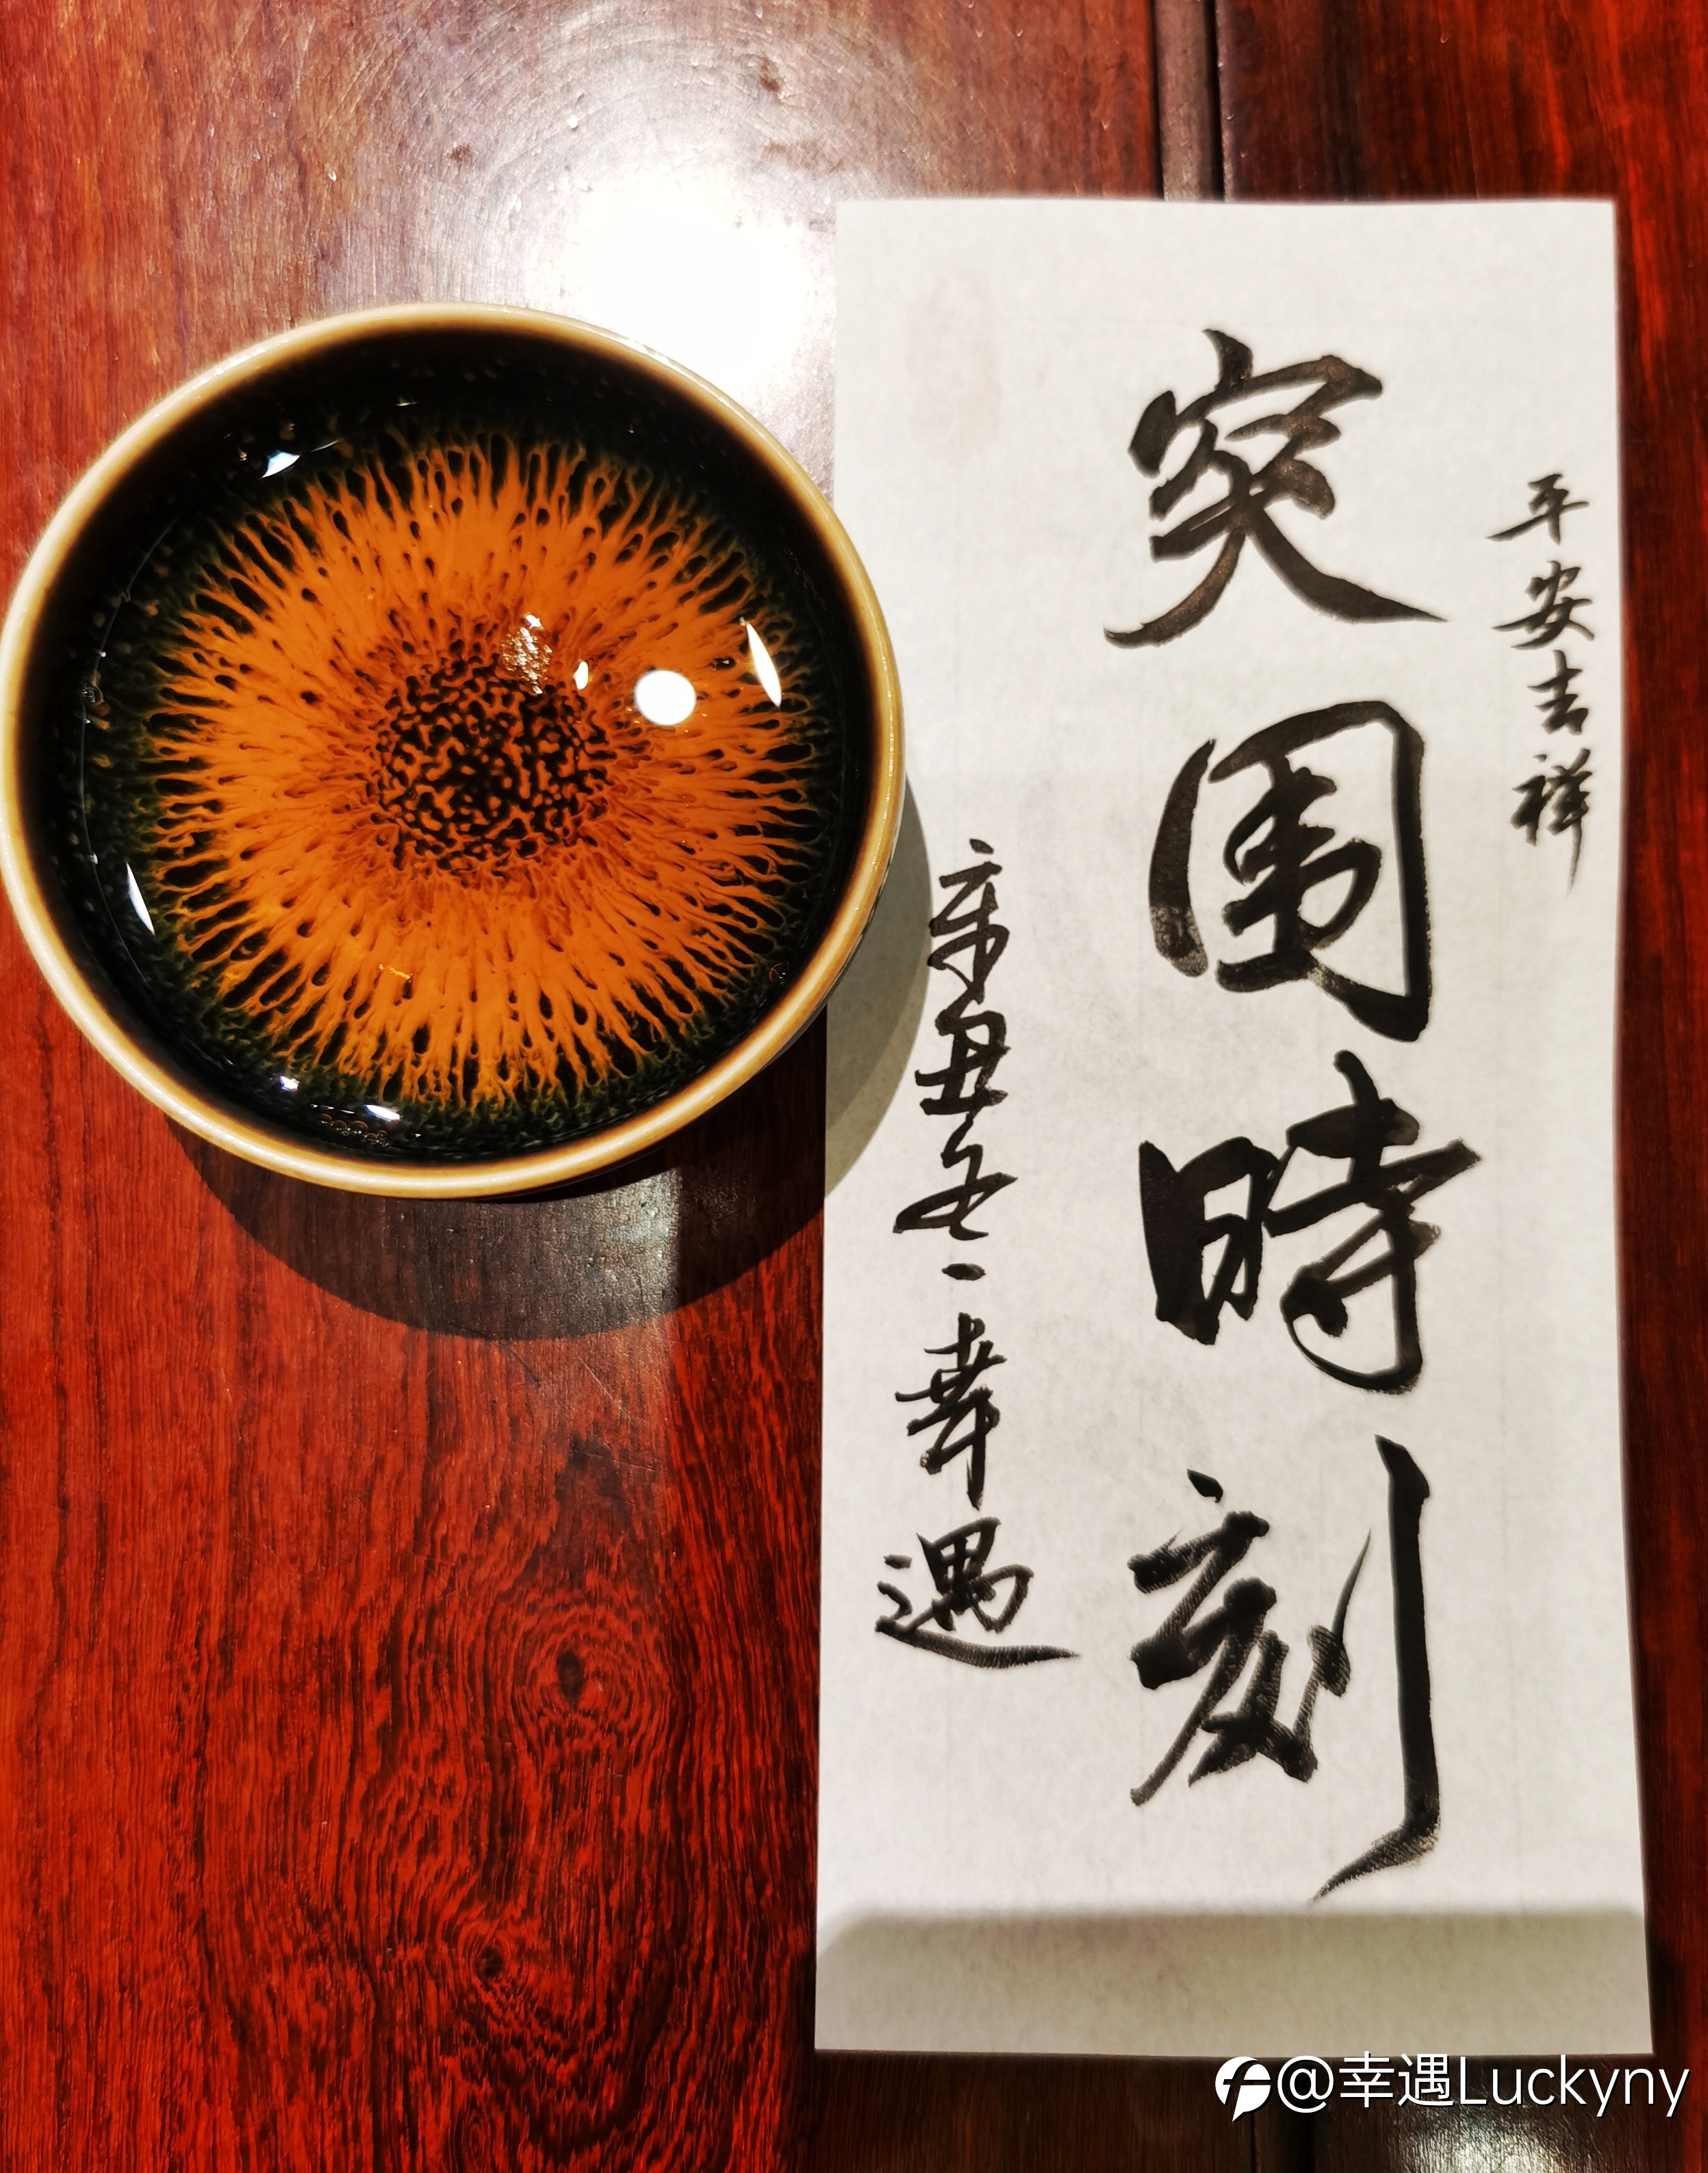 平安吉祥
突围時刻
辛丑冬一幸遇
@幸遇Luckyny